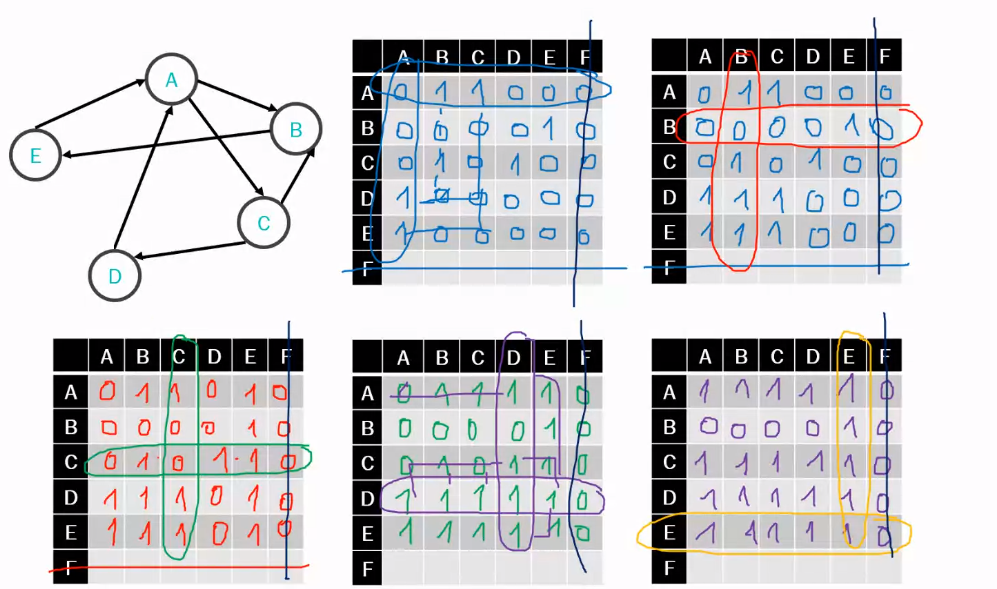 A
B
E
C
D
A B C D E F
A 0 1 1 0 0 0
B 0 0 0 0 1 0
C 0 1 0 1 0 0
D 1 0 0 0 0 0
E 1 0 0 0 0 0
F
A B C D E F
A 0 1 1 0 0 0
B 0 0 0 0 1 0
C 0 1 0 1 0 0
D 1 1 1 0 0 0
E 1 1 1 0 0 0
F
A B C D E F
A 0 1 1 0 1 0
B 0 0 0 0 1 0
C 0 1 0 1 1 0
D 1 1 1 0 1 0
E 1 1 1 0 1 0
F
A B C D E F
A 0 1 1 1 1 0
B 0 0 0 0 1 0
C 0 1 0 1 1 0
D 1 1 1 1 1 0
E 1 1 1 1 1 0
F
A B C D E F
A 1 1 1 1 1 0
B 0 0 0 0 1 0
C 1 1 1 1 1 0
D 1 1 1 1 1 0
E 1 1 1 1 1 0
F